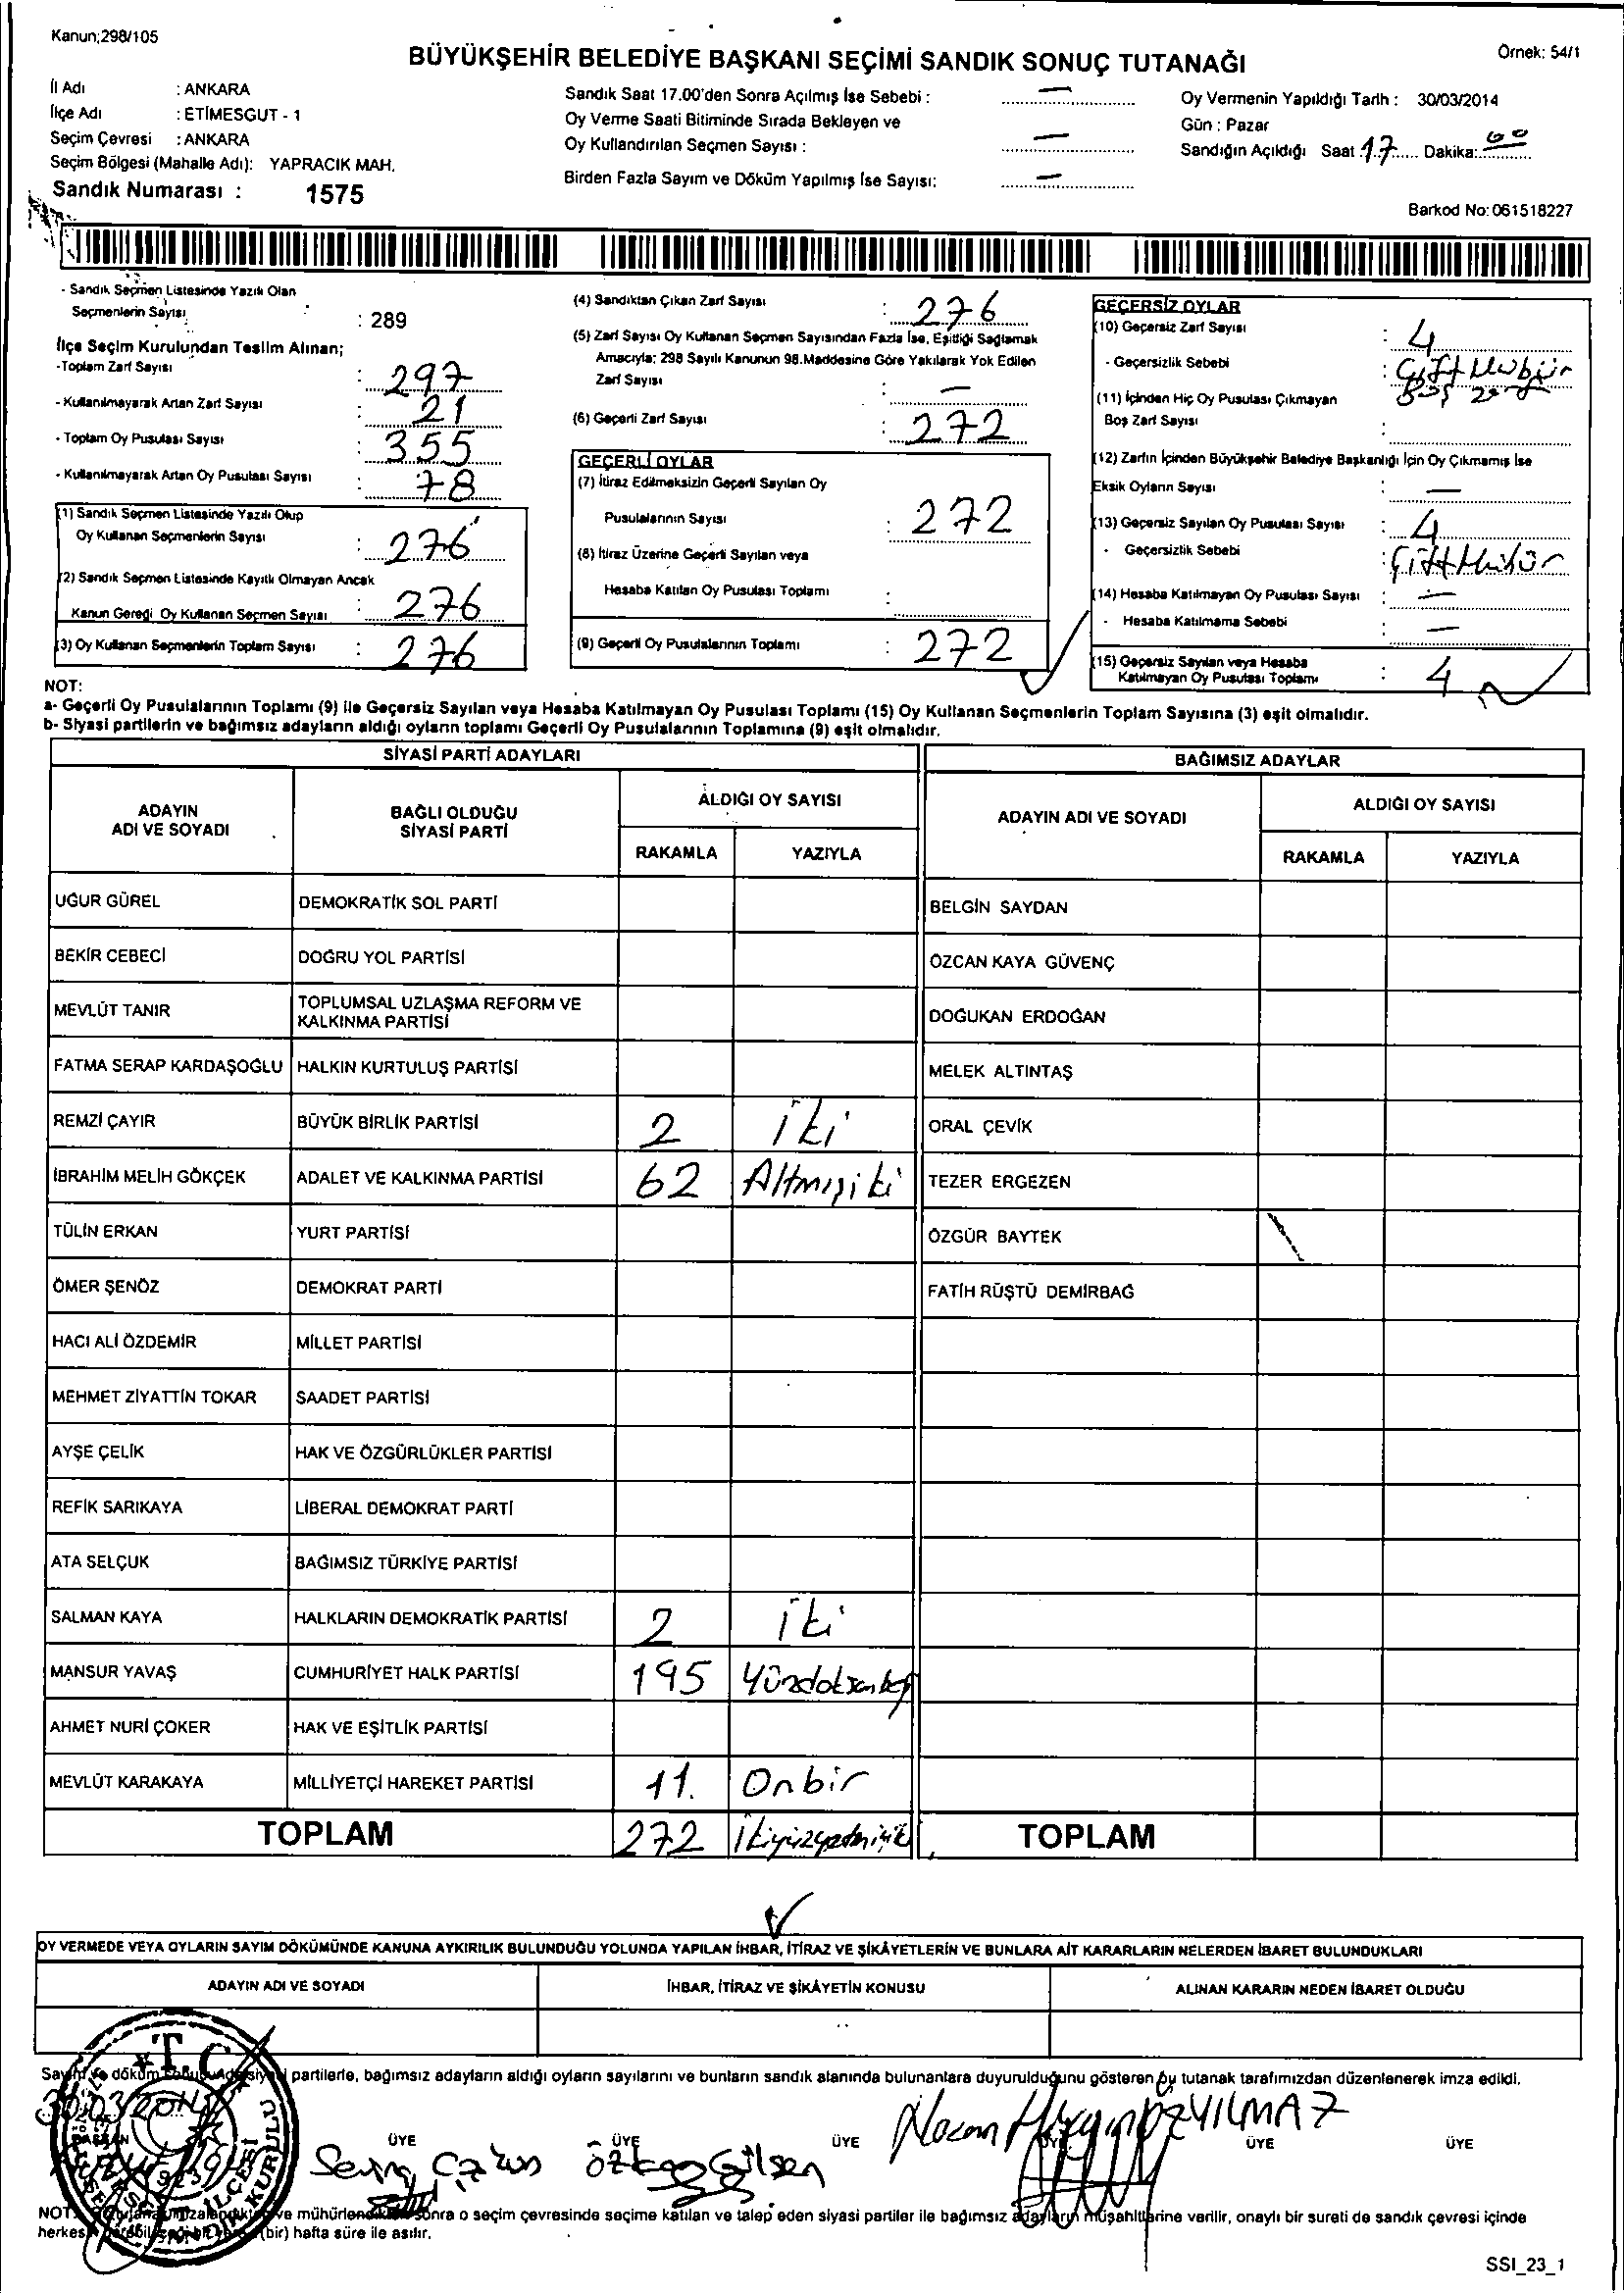 Kanun;298/105
BÜYÜKŞEHİR BELEDİYE BAŞKANI SEÇİMİ SANDIK SONUÇ TUTANAĞI
Örnek: 54/1
İl Adı : ANKARA
İlçe Adı : ETİMESGUT - 1
Seçim Çevresi : ANKARA
Seçim Bölgesi (Mahalle Adı): YAPRACIK MAH.
Sandık Numarası : 1575
Sandık Saat 17.00'den Sonra Açılmış İse Sebebi : —
Oy Verme Saati Bitiminde Sırada Bekleyen ve
Oy Kullandırılan Seçmen Sayısı : —
Birden Fazla Sayım ve Döküm Yapılmış İse Sayısı: —
Oy Vermenin Yapıldığı Tarih : 30/03/2014
Gün : Pazar
Sandığın Açıldığı Saat 17 Dakika: 00
Barkod No: 061518227
- Sandık Seçmen Listesinde Yazılı Olan
Seçmenlerin Sayısı : 289
İlçe Seçim Kurulundan Teslim Alınan;
-Toplam Zarf Sayısı : 297
- Kullanılmayarak Artan Zarf Sayısı : 21
- Toplam Oy Pusulası Sayısı : 355
- Kullanılmayarak Artan Oy Pusulası Sayısı : 78
(1) Sandık Seçmen Listesinde Yazılı Olup
Oy Kullanan Seçmenlerin Sayısı : 276
(2) Sandık Seçmen Listesinde Kayıtlı Olmayan Ancak
Kanun Gereği Oy Kullanan Seçmen Sayısı : 276
(3) Oy Kullanan Seçmenlerin Toplam Sayısı : 276
(4) Sandıktan Çıkan Zarf Sayısı : 276
(5) Zarf Sayısı Oy Kullanan Seçmen Sayısından Fazla İse, Eşitliği Sağlamak
Amacıyla; 298 Sayılı Kanunun 98.Maddesine Göre Yakılarak Yok Edilen
Zarf Sayısı : —
(6) Geçerli Zarf Sayısı : 272
GEÇERLİ OYLAR
(7) İtiraz Edilmeksizin Geçerli Sayılan Oy
Pusulalarının Sayısı : 272
(8) İtiraz Üzerine Geçerli Sayılan veya
Hesaba Katılan Oy Pusulası Toplamı :
(9) Geçerli Oy Pusulalarının Toplamı : 272
GEÇERSİZ OYLAR
(10) Geçersiz Zarf Sayısı : 4
- Geçersizlik Sebebi : Çift Mühür
Boş zarf
(11) İçinden Hiç Oy Pusulası Çıkmayan
Boş Zarf Sayısı :
(12) Zarfın İçinden Büyükşehir Belediye Başkanlığı İçin Oy Çıkmamış İse
Eksik Oyların Sayısı : —
(13) Geçersiz Sayılan Oy Pusulası Sayısı : 4
- Geçersizlik Sebebi : Çift Mühür
(14) Hesaba Katılmayan Oy Pusulası Sayısı : —
- Hesaba Katılmama Sebebi : —
(15) Geçersiz Sayılan veya Hesaba
Katılmayan Oy Pusulası Toplamı : 4
NOT:
a- Geçerli Oy Pusulalarının Toplamı (9) ile Geçersiz Sayılan veya Hesaba Katılmayan Oy Pusulası Toplamı (15) Oy Kullanan Seçmenlerin Toplam Sayısına (3) eşit olmalıdır.
b- Siyasi partilerin ve bağımsız adayların aldığı oyların toplamı Geçerli Oy Pusulalarının Toplamına (9) eşit olmalıdır.
SİYASİ PARTİ ADAYLARI
ADAYIN ADI VE SOYADI
BAĞLI OLDUĞU SİYASİ PARTİ
ALDIĞI OY SAYISI
RAKAMLA YAZIYLA
UĞUR GÜREL DEMOKRATİK SOL PARTİ
BEKİR CEBECİ DOĞRU YOL PARTİSİ
MEVLÜT TANIR TOPLUMSAL UZLAŞMA REFORM VE
KALKINMA PARTİSİ
FATMA SERAP KARDAŞOĞLU HALKIN KURTULUŞ PARTİSİ
REMZİ ÇAYIR BÜYÜK BİRLİK PARTİSİ 2 iki
İBRAHİM MELİH GÖKÇEK ADALET VE KALKINMA PARTİSİ 62 Altmışiki
TÜLİN ERKAN YURT PARTİSİ
ÖMER ŞENÖZ DEMOKRAT PARTİ
HACI ALİ ÖZDEMİR MİLLET PARTİSİ
MEHMET ZİYATTİN TOKAR SAADET PARTİSİ
AYŞE ÇELİK HAK VE ÖZGÜRLÜKLER PARTİSİ
REFİK SARIKAYA LİBERAL DEMOKRAT PARTİ
ATA SELÇUK BAĞIMSIZ TÜRKİYE PARTİSİ
SALMAN KAYA HALKLARIN DEMOKRATİK PARTİSİ 2 iki
MANSUR YAVAŞ CUMHURİYET HALK PARTİSİ 195 Yüzdoksanbeş
AHMET NURİ ÇOKER HAK VE EŞİTLİK PARTİSİ
MEVLÜT KARAKAYA MİLLİYETÇİ HAREKET PARTİSİ 11. Onbir
TOPLAM 272 İkiyüzyetmişiki
BAĞIMSIZ ADAYLAR
ADAYIN ADI VE SOYADI
ALDIĞI OY SAYISI
RAKAMLA YAZIYLA
BELGİN SAYDAN
ÖZCAN KAYA GÜVENÇ
DOĞUKAN ERDOĞAN
MELEK ALTINTAŞ
ORAL ÇEVİK
TEZER ERGEZEN
ÖZGÜR BAYTEK
FATİH RÜŞTÜ DEMİRBAĞ
TOPLAM
OY VERMEDE VEYA OYLARIN SAYIM DÖKÜMÜNDE KANUNA AYKIRILIK BULUNDUĞU YOLUNDA YAPILAN İHBAR, İTİRAZ VE ŞİKÂYETLERİN VE BUNLARA AİT KARARLARIN NELERDEN İBARET BULUNDUKLARI
ADAYIN ADI VE SOYADI İHBAR, İTİRAZ VE ŞİKÂYETİN KONUSU ALINAN KARARIN NEDEN İBARET OLDUĞU
T.C
Sayım ve döküm sonucunda siyasi partilerle, bağımsız adayların aldığı oyların sayılarını ve bunların sandık alanında bulunanlara duyurulduğunu gösteren bu tutanak tarafımızdan düzenlenerek imza edildi.
30.03.2014
BAŞKAN ÜYE ÜYE ÜYE ÜYE ÜYE ÜYE
Gülsen
YILMAZ
İLÇESİ
KURULU
1923
NOT: ve mühürlendikten sonra o seçim çevresinde seçime katılan ve talep eden siyasi partiler ile bağımsız adayların müşahitlerine verilir, onaylı bir sureti de sandık çevresi içinde
(bir) hafta süre ile asılır.
SSI_23_1